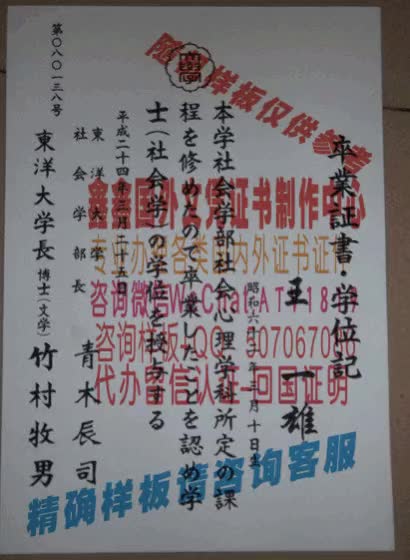 第〇八〇一三八号
卒業証書・学位記
王 一雄
本学社会学部社会心理学科所定の課
程を修めたので卒業したことを認め学
士(社会学)の学位を授与する
平成二十四年三月二十五日
東洋大学
社会学部長 青木辰司
東洋大学長 博士(文学) 竹村牧男
样板仅供参考
鑫鑫国外文凭证书制作中心
咨询微信WeChat
咨询样板QQ
代办留信认证-回国证明
精确样板请咨询客服